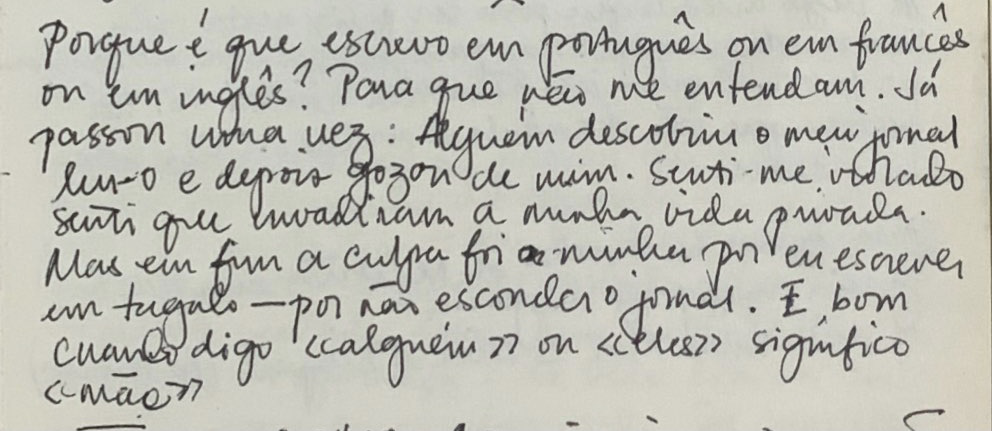 Porque é que escrevo em português ou em francês
ou em inglês? Para que não me entendam. Já
passou uma vez: Alguém descobriu o meu jornal
leu-o e depois gozou de mim. Senti-me violado
senti que invadiram a minha vida privada.
Mas em fim a culpa foi a minha por eu escrever
em tagalo—por não esconder o jornal. E bom
cuando digo <<alguém>> ou <<eles>> significo
<<mãe>>